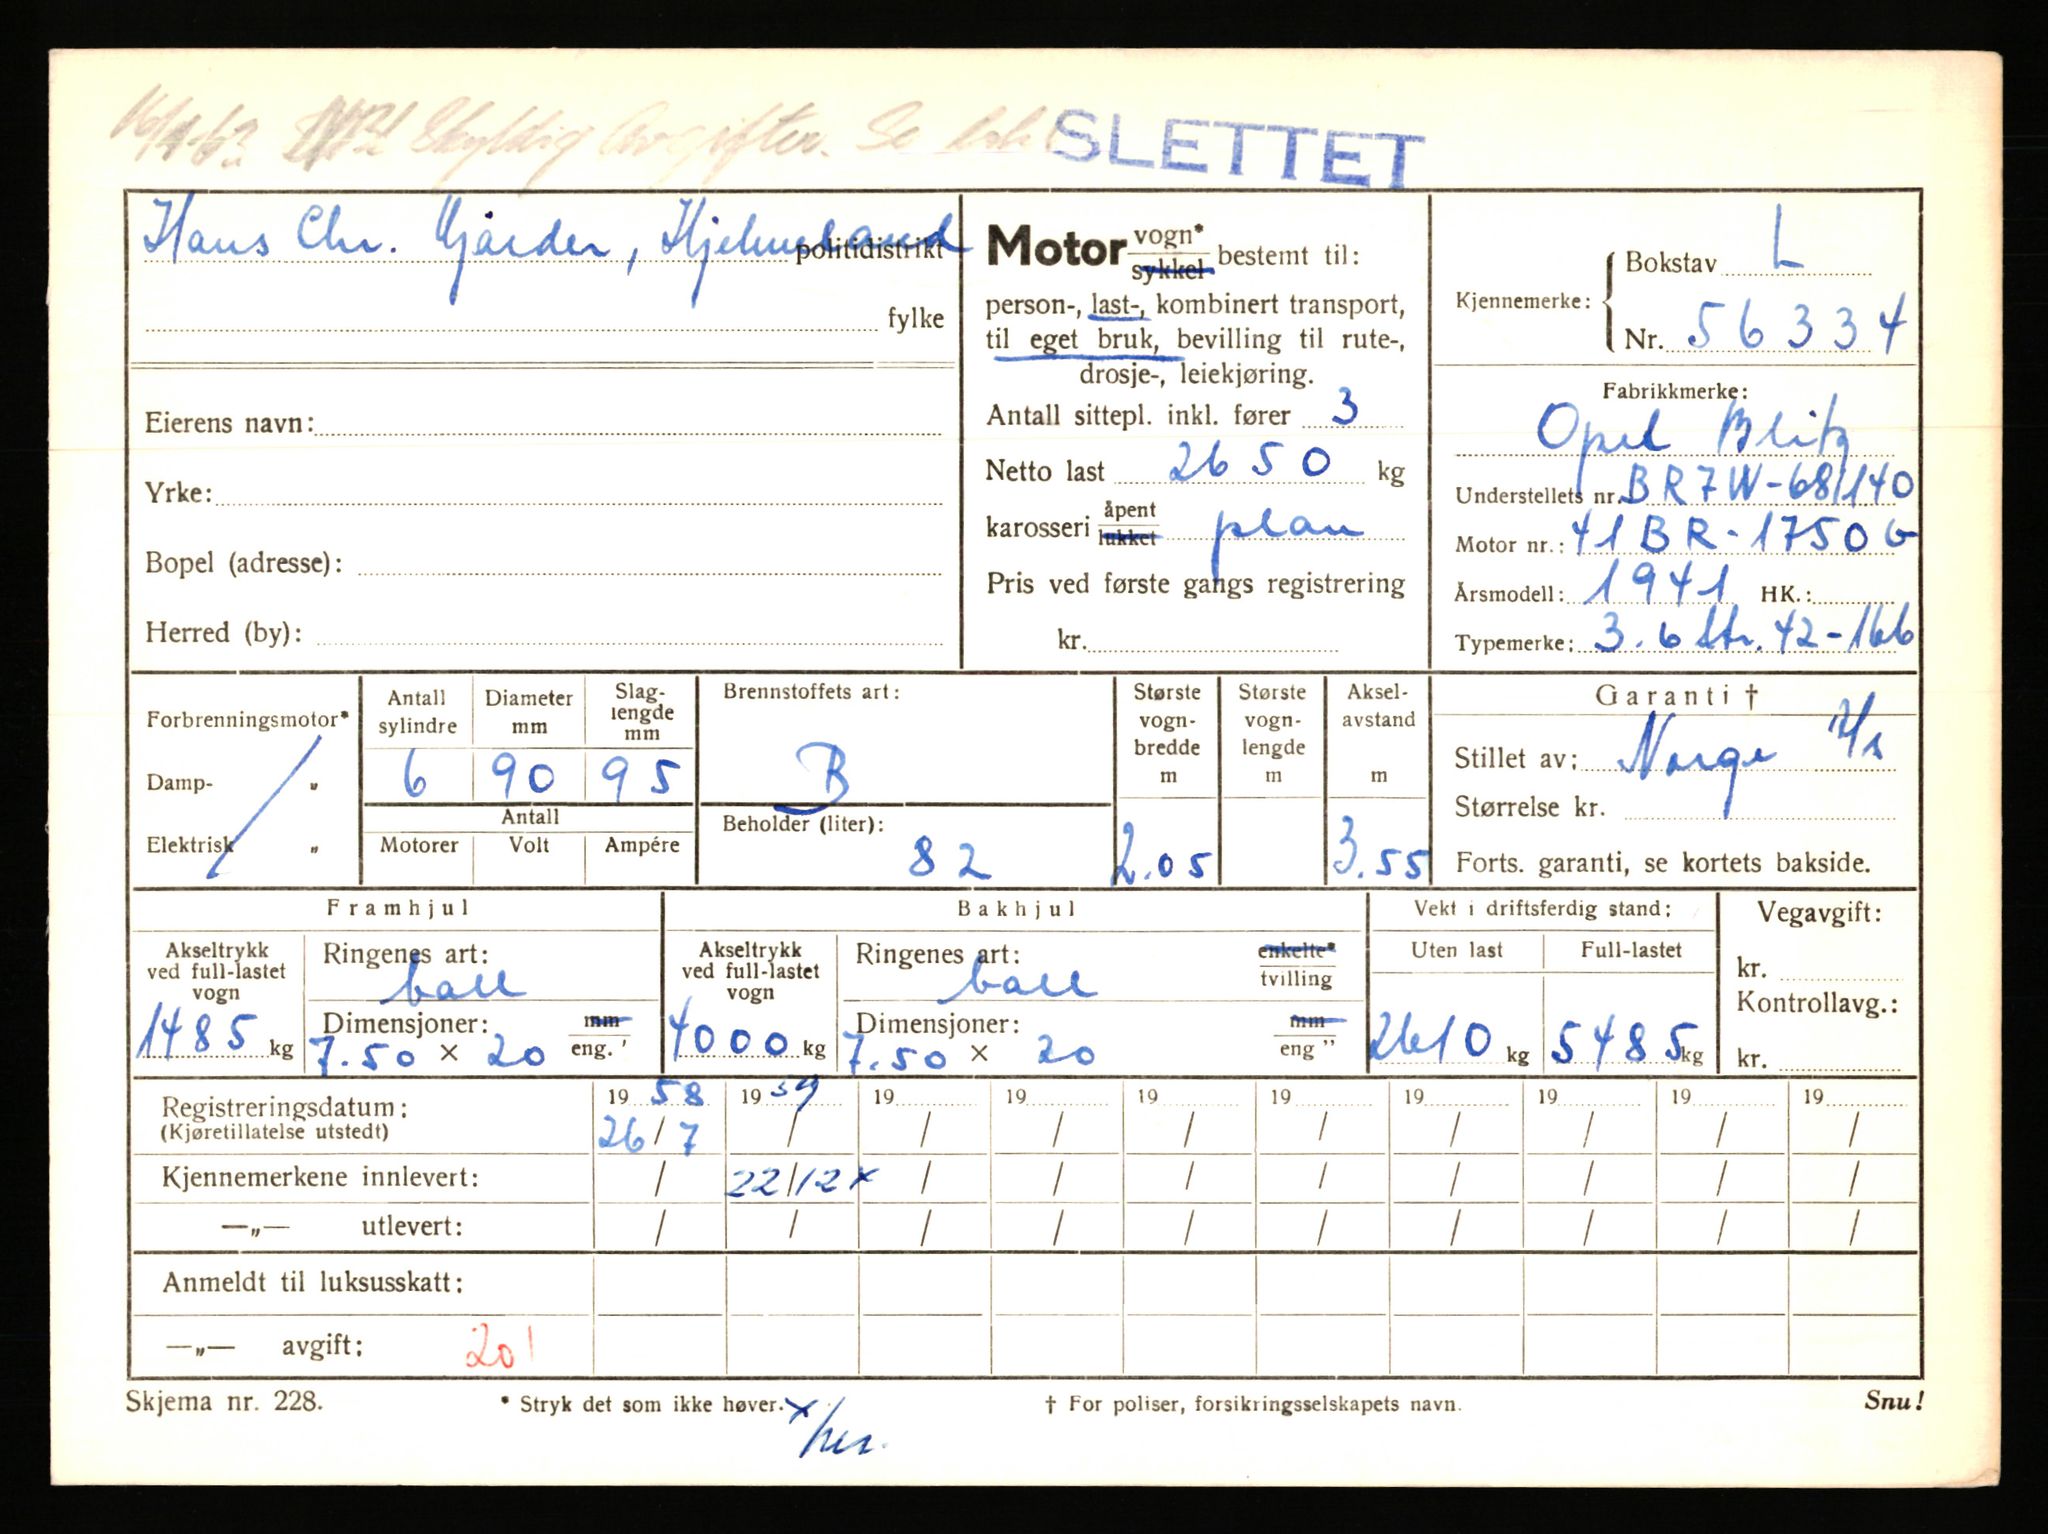 16/1-63 Skyldig Avgifter. Se
SLETTET
Hans Chr. Gjårder, Hjelmeland politidistrikt
fylke
Eierens navn:
Yrke:
Bopel (adresse):
Herred (by):
Motor vogn* sykkel bestemt til:
person-, last-, kombinert transport,
til eget bruk, bevilling til rute-,
drosje-, leiekjøring.
Antall sittepl. inkl. fører 3
Netto last 2650 kg
karosseri åpent lukket plan
Pris ved første gangs registrering
kr.
Kjennemerke: Bokstav L
Nr. 56334
Fabrikkmerke:
Opel Blitz
Understellets nr. BR7W-68140
Motor nr.: 41BR-1750G
Årsmodell: 1941 HK.:
Typemerke: 3.6 ltr. 42-166
Forbrenningsmotor*
Damp- „
Elektrisk „
Antall sylindre 6
Diameter mm 90
Slag-lengde mm 95
Antall
Motorer Volt Ampére
Brennstoffets art:
B
Beholder (liter):
82
Største vogn-bredde m 2.05
Største vogn-lengde m
Aksel-avstand m 3.55
Garanti †
Stillet av: Norge
Størrelse kr.
Forts. garanti, se kortets bakside.
Framhjul
Akseltrykk ved full-lastet vogn 1485 kg
Ringenes art: ball
Dimensjoner: mm eng. '
7.50 × 20
Bakhjul
Akseltrykk ved full-lastet vogn 4000 kg
Ringenes art: ball enkelte* tvilling
Dimensjoner: mm eng "
7.50 × 20
Vekt i driftsferdig stand:
Uten last Full-lastet
2610 kg 5485 kg
Vegavgift:
kr.
Kontrollavg.:
kr.
Registreringsdatum: 19 58 19 59 19 19 19 19 19 19 19 19
(Kjøretillatelse utstedt) 26/7 / / / / / / / / /
Kjennemerkene innlevert: / 22/12 x / / / / / / / /
—„— utlevert: / / / / / / / / / /
Anmeldt til luksusskatt:
—„— avgift: 20!
Skjema nr. 228.
* Stryk det som ikke høver.
† For poliser, forsikringsselskapets navn.
Snu!
x/